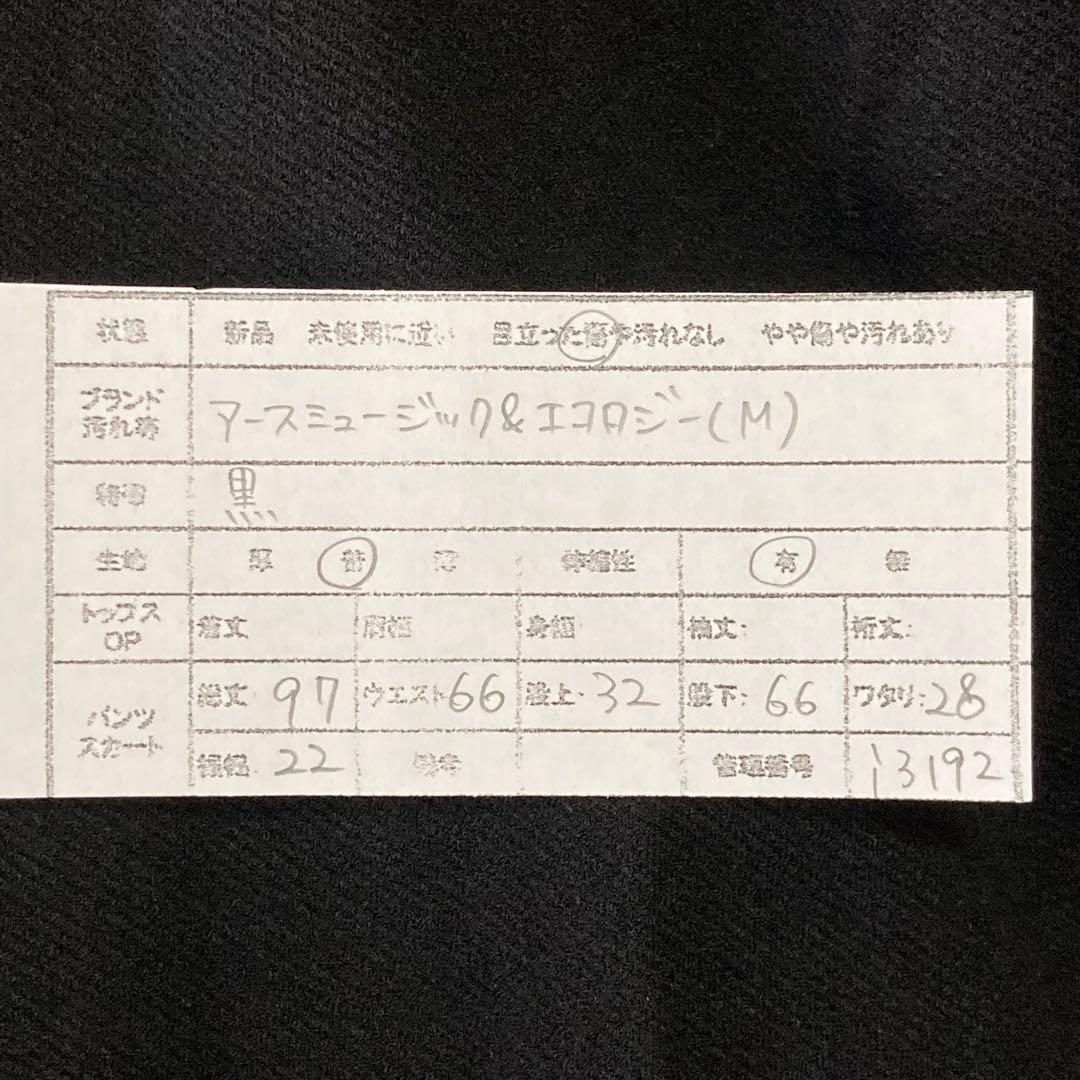 状態 新品 未使用に近い 目立った傷や汚れなし やや傷や汚れあり
ブランド
汚れ等 アースミュージック&エコロジー(M)
備考 黒
生地 厚 普 薄 伸縮性 有 無
トップス
OP 着丈 肩幅 身幅 袖丈: 裄丈:
パンツ
スカート 総丈 97 ウエスト66 股上 32 股下: 66 ワタリ:28
裾幅 22 備考 管理番号 i3192